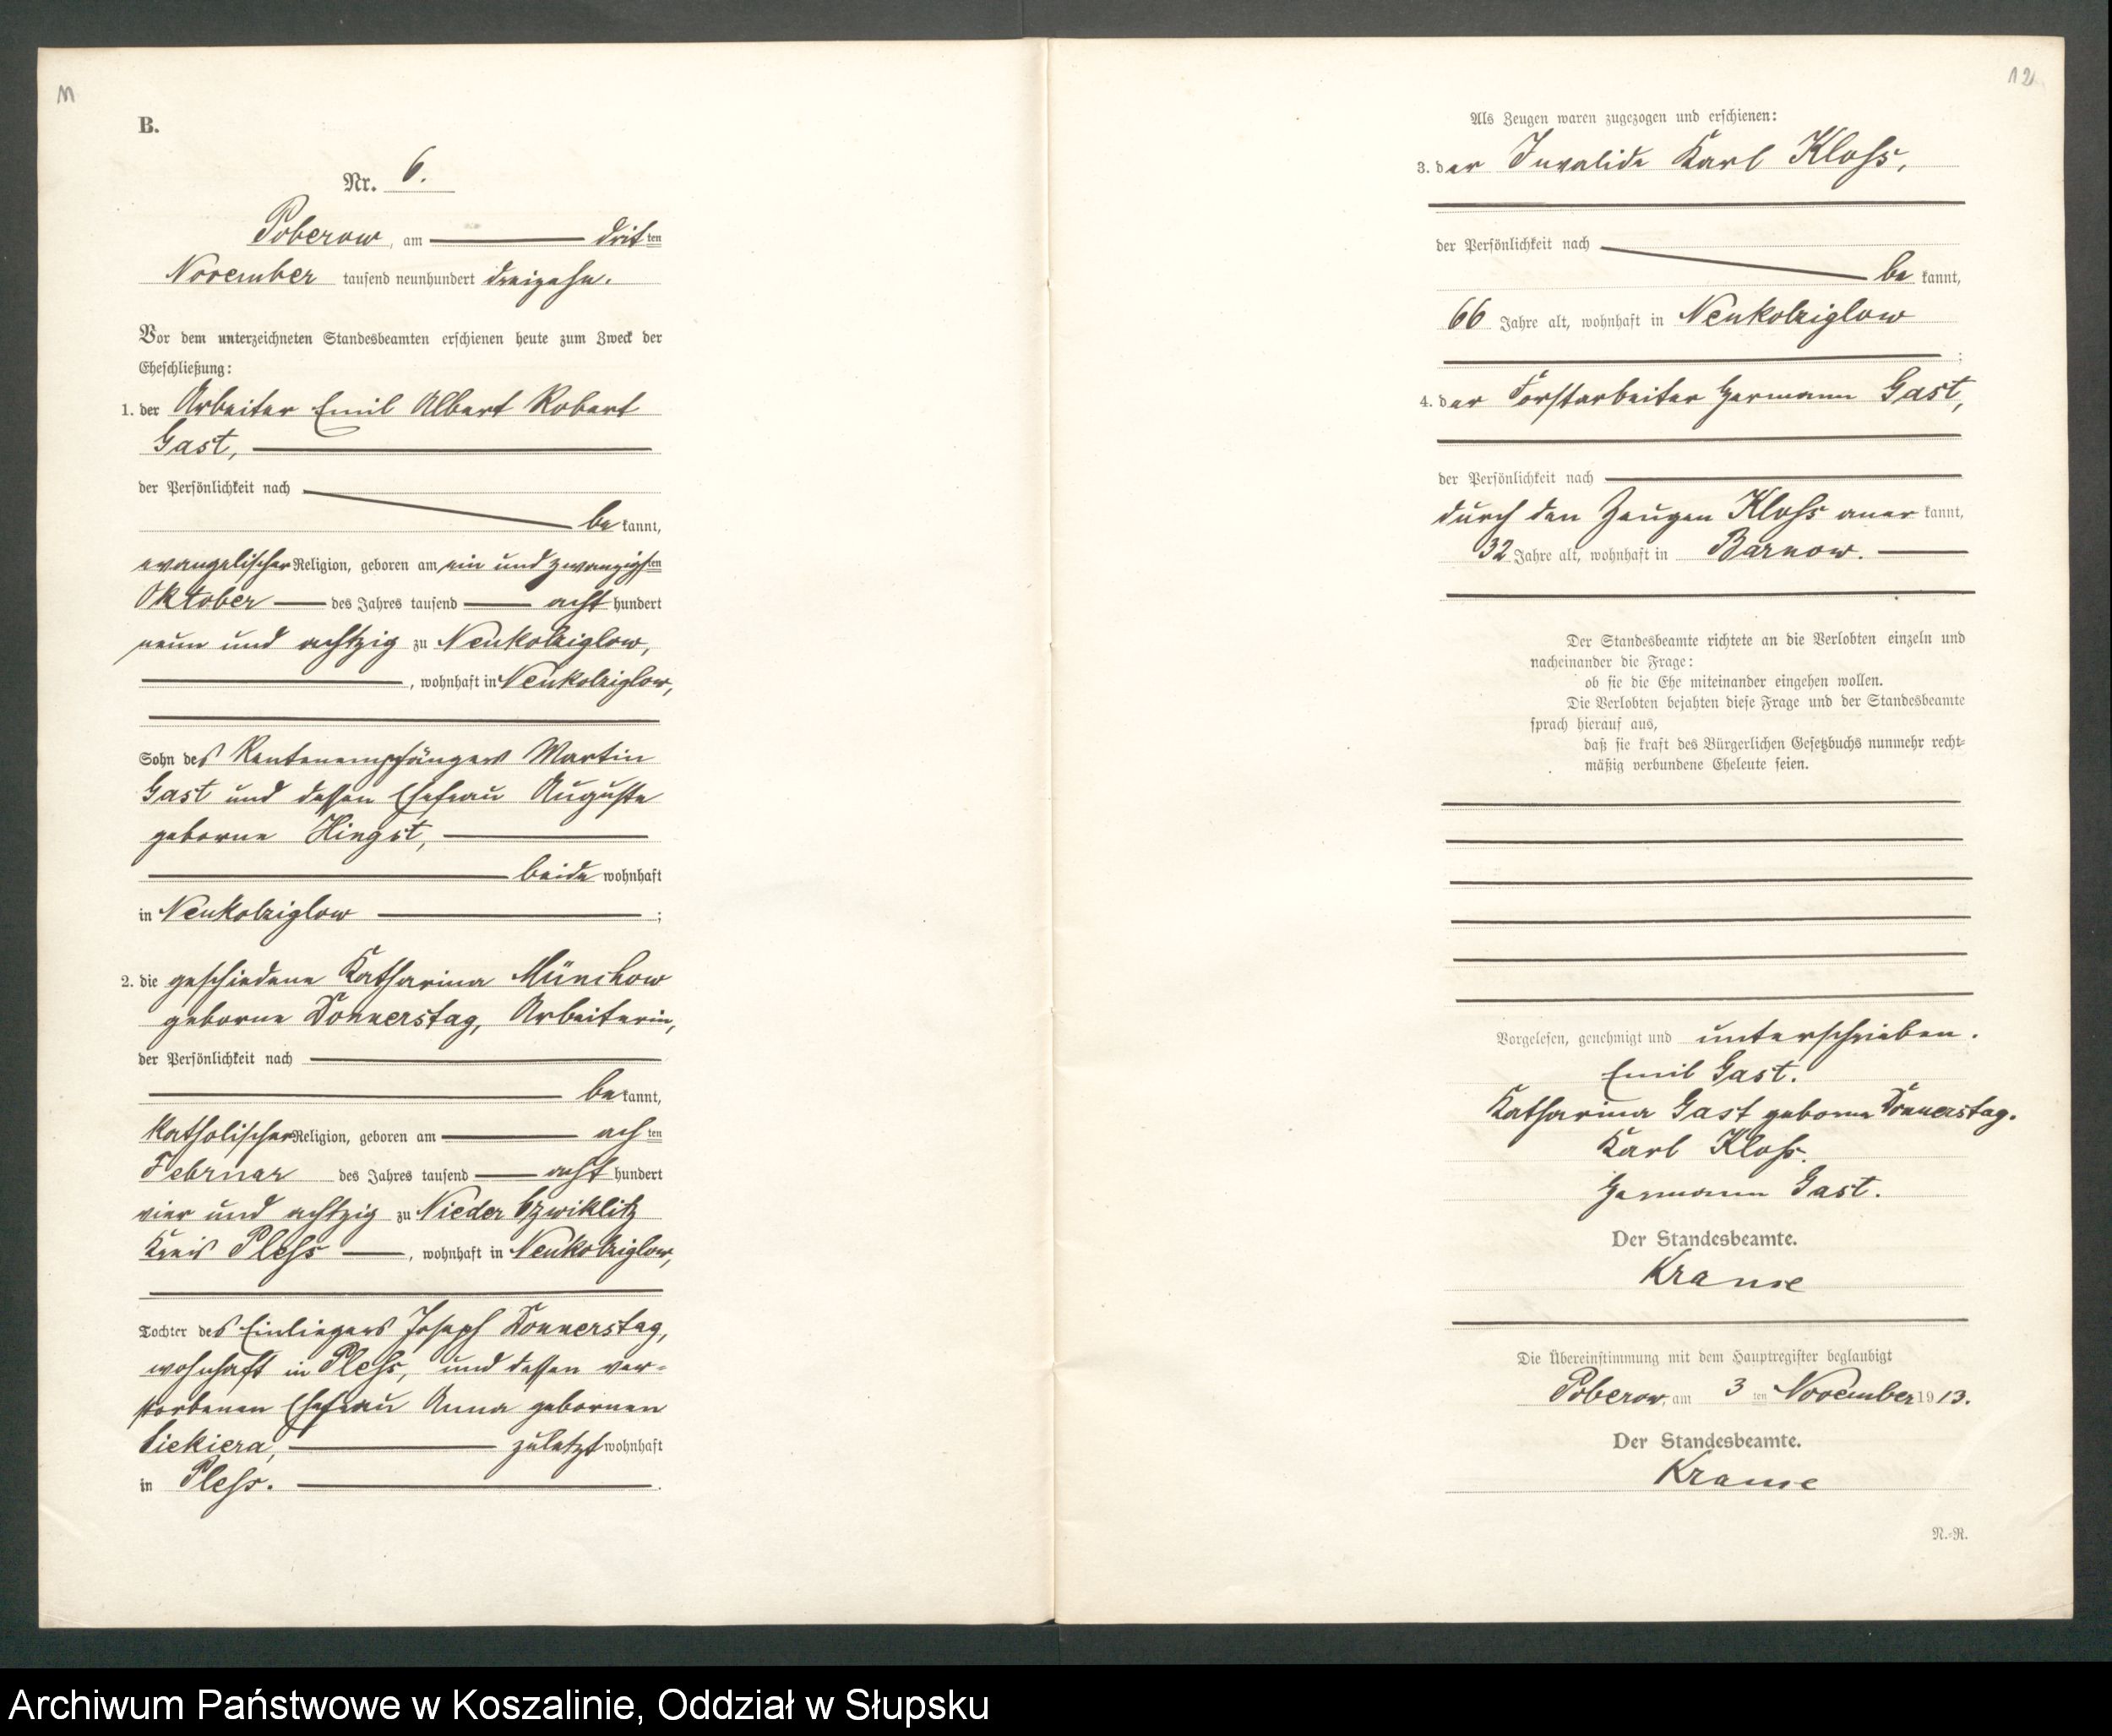 11
B.
Nr. 6.
Poberow, am dritten
November tausend neunhundert dreizehn.
Vor dem unterzeichneten Standesbeamten erschienen heute zum Zweck der
Eheschließung:
1. der Arbeiter Emil Albert Robert
Gast,
der Persönlichkeit nach
bekannt,
evangelischer Religion, geboren am ein und zwanzigsten
Oktober des Jahres tausend acht hundert
neun und achtzig zu Neukolziglow,
, wohnhaft in Neukolziglow,
Sohn des Rentenempfängers Martin
Gast und dessen Ehefrau Auguste
geborne Hingst,
beide wohnhaft
in Neukolziglow ;
2. die geschiedene Katharina Münchow
geborne Donnerstag, Arbeiterin,
der Persönlichkeit nach
bekannt,
katholischer Religion, geboren am achten
Februar des Jahres tausend acht hundert
vier und achtzig zu Nieder Czwiklitz
Kreis Pless , wohnhaft in Neukolziglow,
Tochter des Einliegers Joseph Donnerstag,
wohnhaft in Pless, und dessen ver-
storbenen Ehefrau Anna gebornen
Siekiera, zuletzt wohnhaft
in Pless.
12
Als Zeugen waren zugezogen und erschienen:
3. der Invalide Karl Kloss,
der Persönlichkeit nach
bekannt,
66 Jahre alt, wohnhaft in Neukolziglow
;
4. der Forstarbeiter Hermann Gast,
der Persönlichkeit nach
durch den Zeugen Kloss anerkannt,
32 Jahre alt, wohnhaft in Barnow.
Der Standesbeamte richtete an die Verlobten einzeln und
nacheinander die Frage:
ob sie die Ehe miteinander eingehen wollen.
Die Verlobten bejahten diese Frage und der Standesbeamte
sprach hierauf aus,
daß sie kraft des Bürgerlichen Gesetzbuchs nunmehr recht-
mäßig verbundene Eheleute seien.
Vorgelesen, genehmigt und unterschrieben.
Emil Gast.
Katharina Gast geborne Donnerstag.
Karl Kloss.
Hermann Gast.
Der Standesbeamte.
Krause
Die Übereinstimmung mit dem Hauptregister beglaubigt
Poberow, am 3ten November 1913.
Der Standesbeamte.
Krause
N.-R.
Archiwum Państwowe w Koszalinie, Oddział w Słupsku